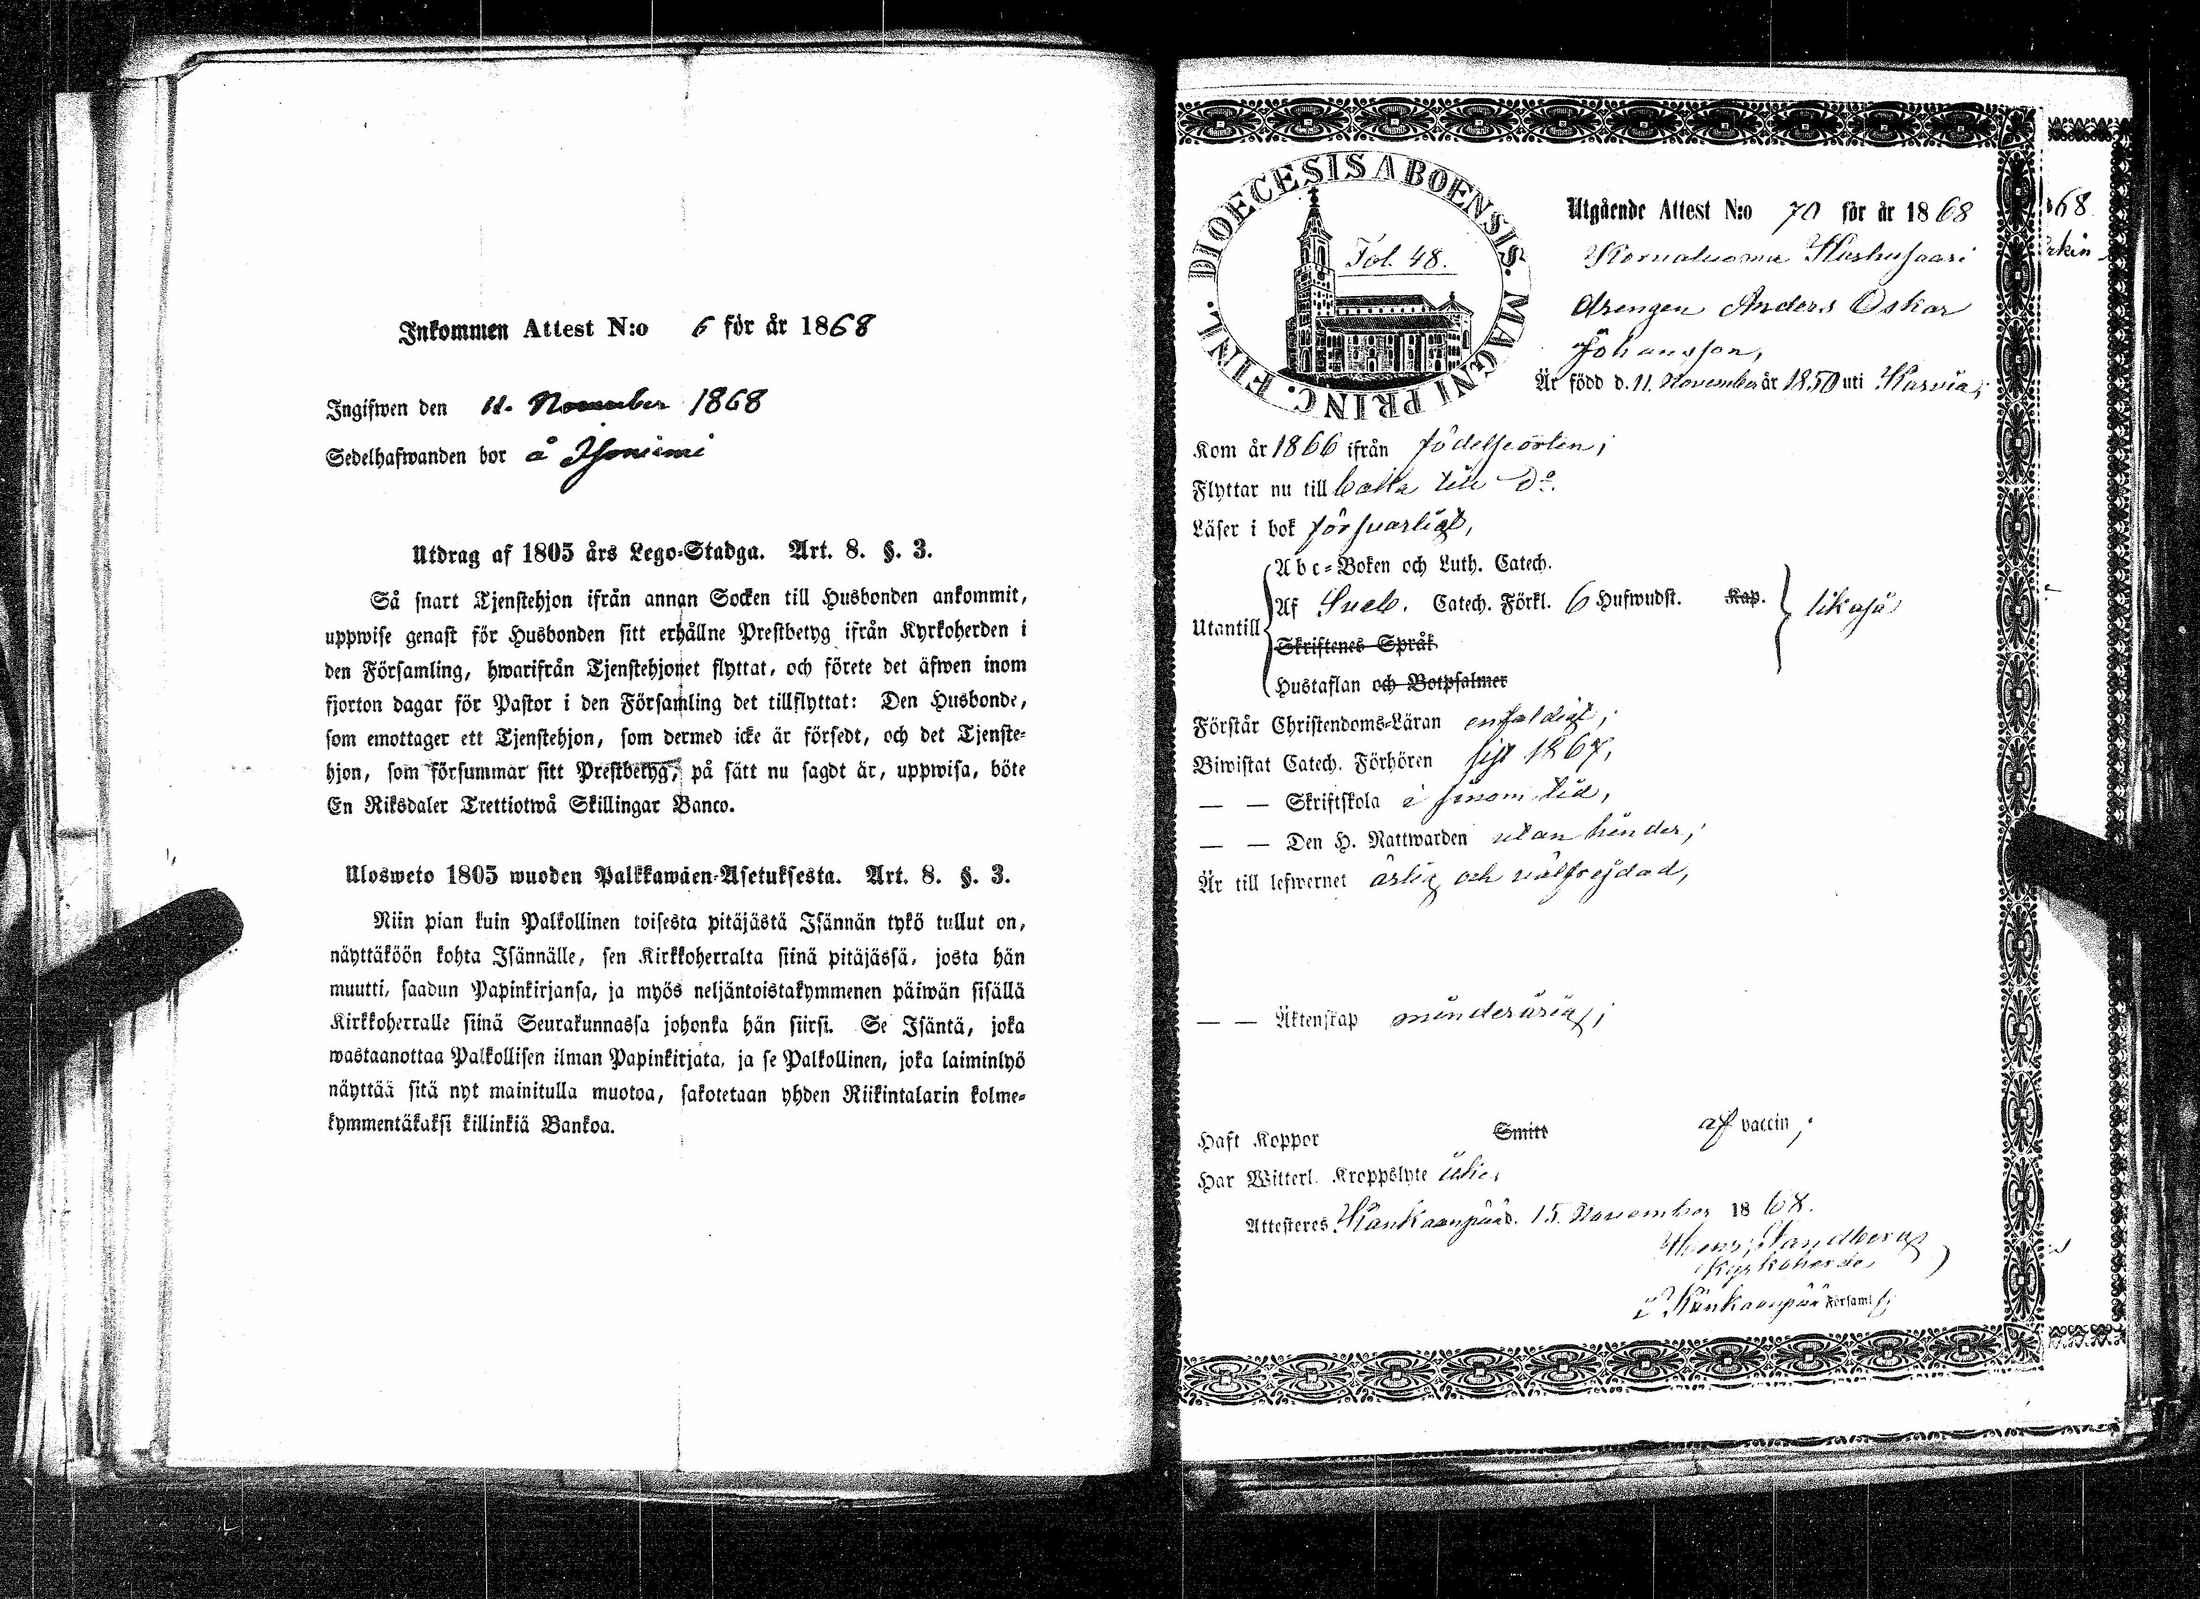 Inkommen Attest N:o 6 för år 1868
Ingifwen den 11. November 1868
Sedelhafwanden bor å Isoniemi
Utdrag af 1805 års Lego-Stadga. Art. 8. §. 3.
Så snart Tjenstehjon ifrån annan Socken till Husbonden ankommit,
uppwise genast för Husbonden sitt erhållne Prestbetyg ifrån Kyrkoherden i
den Församling, hwarifrån Tjenstehjonet flyttat, och förete det äfwen inom
fjorton dagar för Pastor i den Församling det tillflyttat: Den Husbonde,
som emottager ett Tjenstehjon, som dermed icke är försedt, och det Tjenste-
hjon, som försummar sitt Prestbetyg, på sätt nu sagdt är, uppwisa, böte
En Riksdaler Trettiotwå Skillingar Banco.
Ulosweto 1805 wuoden Palkkawäen-Asetuksesta. Art. 8. §. 3.
Niin pian kuin Palkollinen toisesta pitäjästä Isännän tykö tullut on,
näyttäköön kohta Isännälle, sen Kirkkoherralta siinä pitäjässä, josta hän
muutti, saadun Papinkirjansa, ja myös neljäntoistakymmenen päiwän sisällä
Kirkkoherralle siinä Seurakunnassa johonka hän siirsi. Se Isäntä, joka
wastaanottaa Palkollisen ilman Papinkirjata, ja se Palkollinen, joka laiminlyö
näyttää sitä nyt mainitulla muotoa, sakotetaan yhden Riikintalarin kolme-
kymmentäkaksi killinkiä Bankoa.
DIOECESIS ABOENSIS. MAGNI PRINC. FINL.
Fol. 48.
Utgående Attest N:o 70 för år 1868
Drengen Anders Oskar
Johansson,
Är född d. 11. November år 1850 uti Karvia;
Kom år 1866 ifrån födelseorten;
Flyttar nu till baka till Do.
Läser i bok försvarligt,
Utantill
Abc-Boken och Luth. Catech.
Af Sveb. Catech. Förkl. 6 Hufwudst. Kap.
likaså
Skriftenes Språk
Hustaflan och Botpsalmer
Förstår Christendoms-Läran enfaldigt;
Biwistat Catech. Förhören sist 1867,
— — Skriftskola i sinom tid,
— — Den H. Nattwarden utan hinder;
Är till lefwernet ärlig och välfrejdad,
— — Äktenskap minderårig;
Haft Koppor Smitt af vaccin;
Har Witterl. Kroppslyte icke,
Attesteras Kankaanpää d. 15. November 1868.
Sandberg
Kyrkoherde
i Kankaanpää Församl;